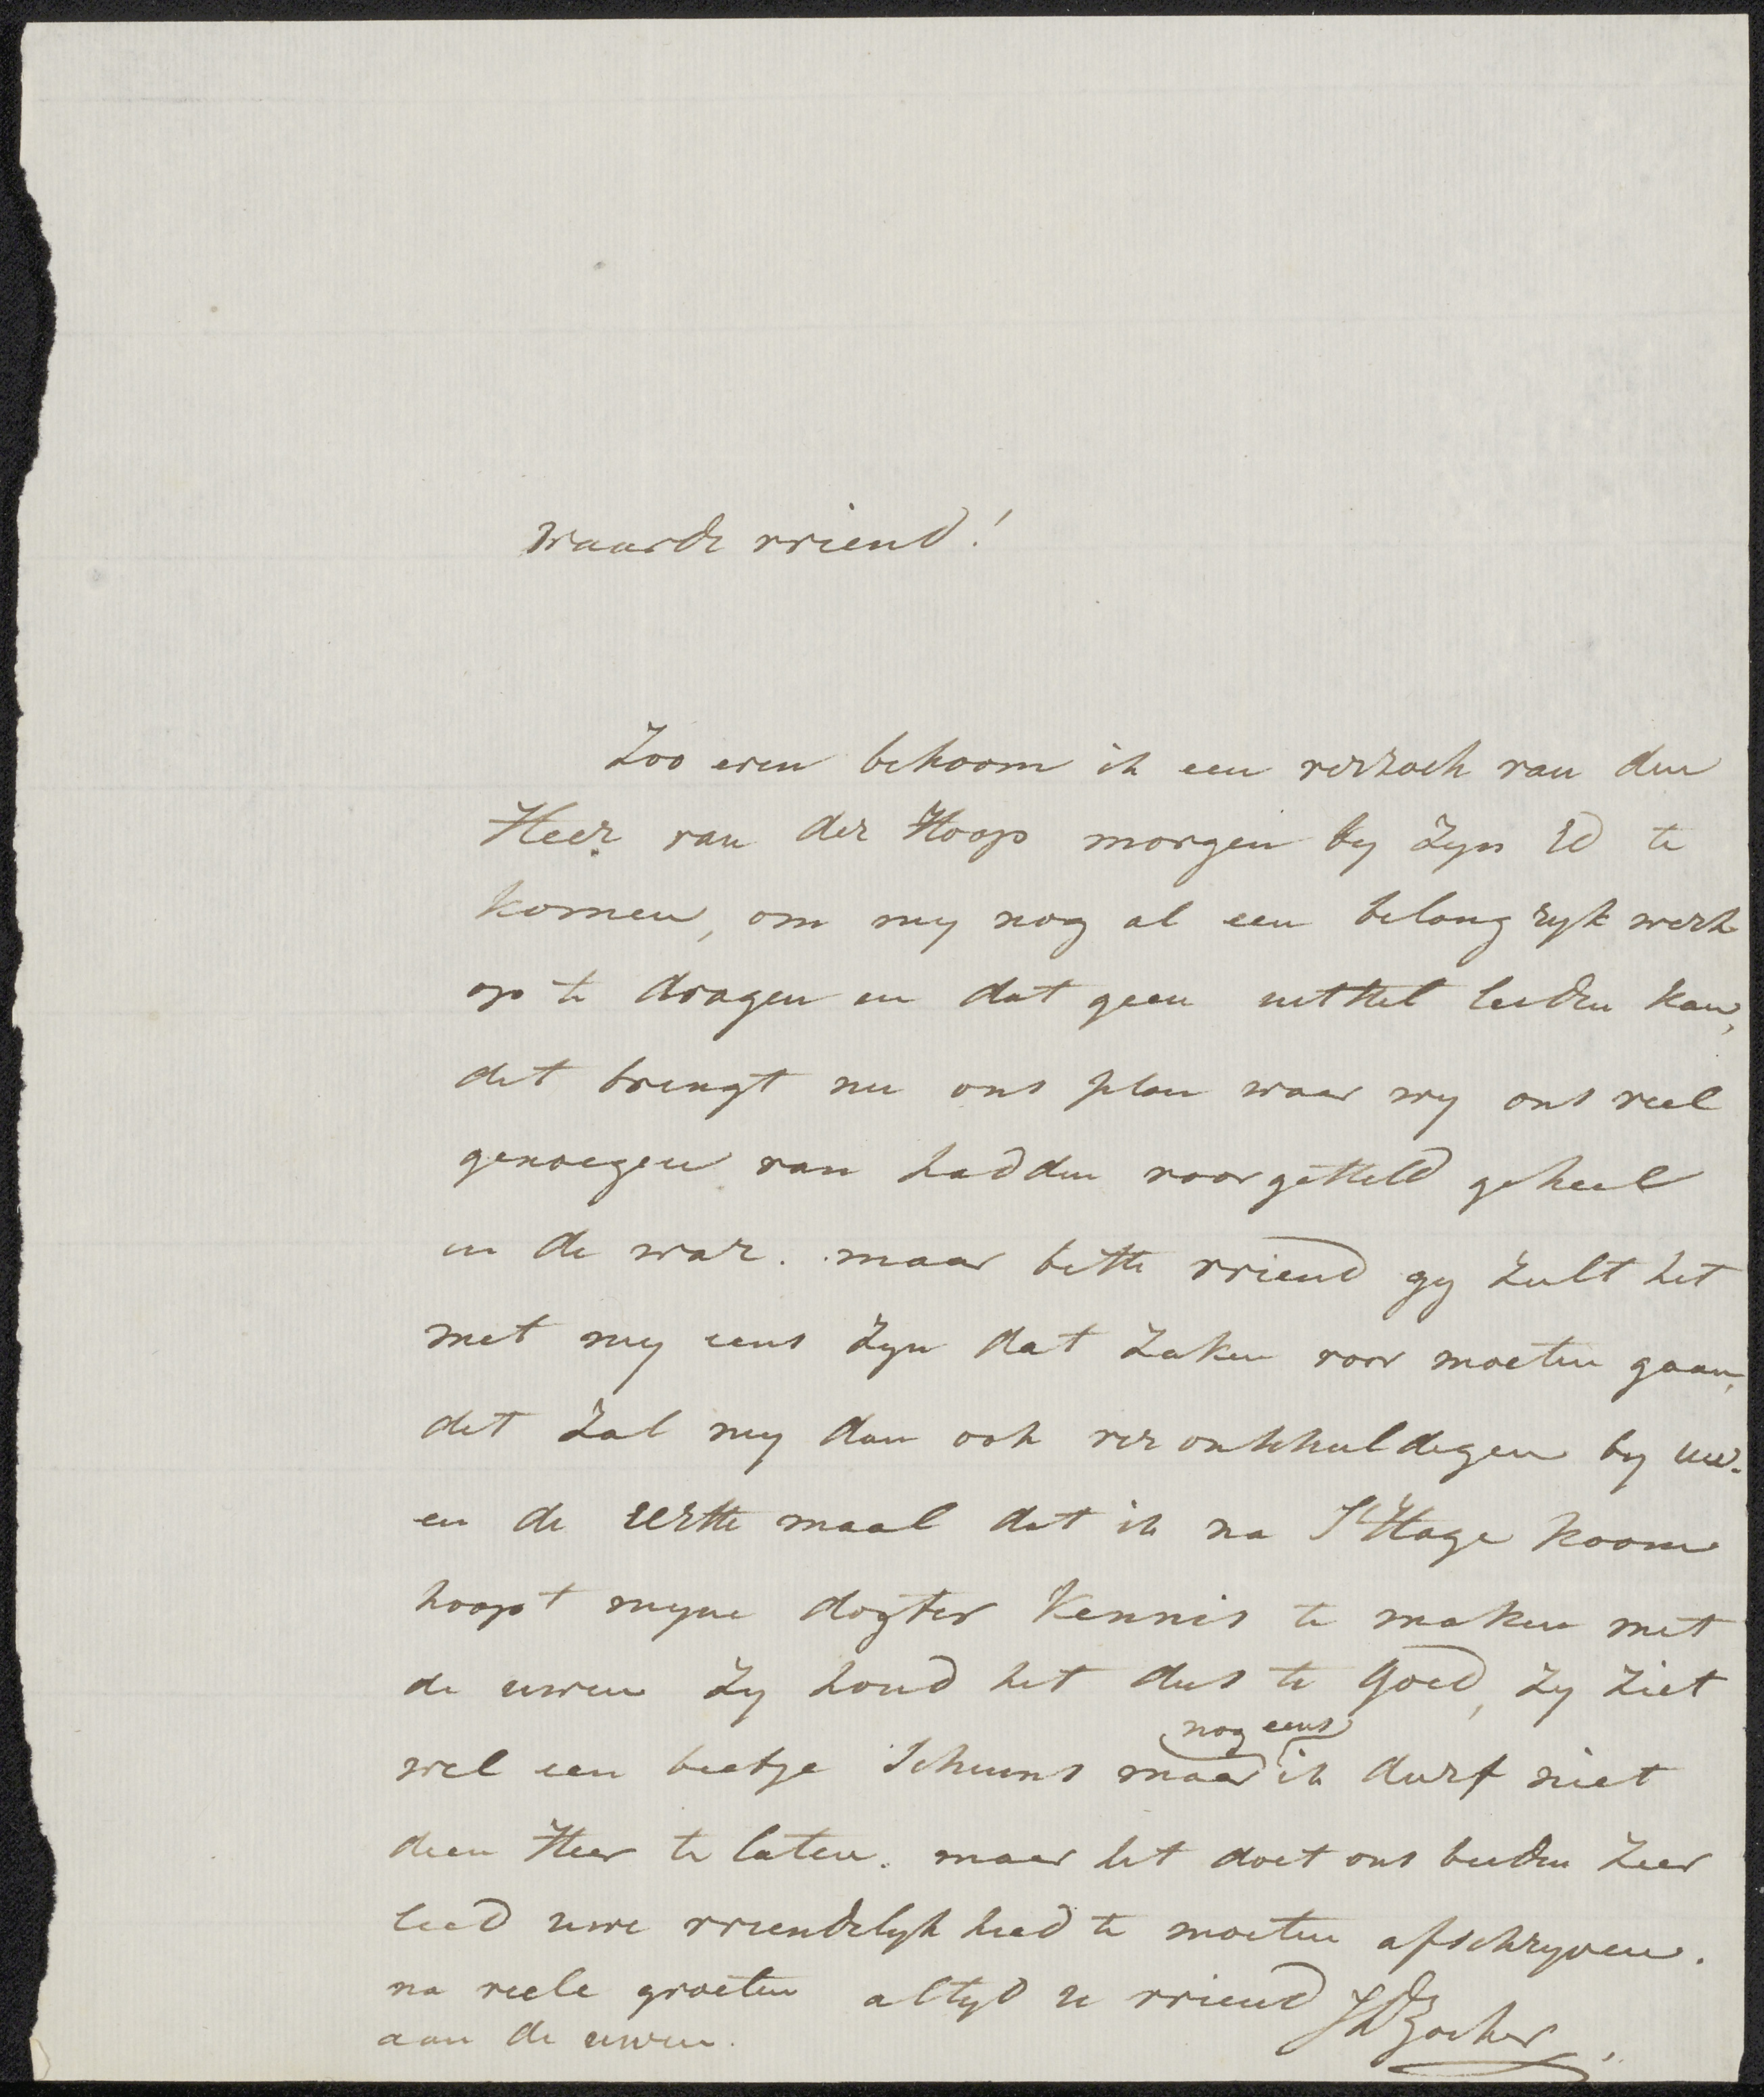 Waarde vriend!
Zoo even bekoom ik een verzoek van den
Heer van der Hoop morgen by Zyn Ed te
komen, om my nog al een belang ryk werk
op te dragen en dat geen uitstel leiden kan,
dit brengt nu ons plan waar wy ons veel
genoegen van hadden voorgesteld geheel
in de war. maar beste vriend gy zult het
met my eens zyn dat zaken voor moeten gaan,
dit zal my dan ook veronschuldigen by uw.
en de eerste maal dat ik na S'Hage koom
hoopt myne dogter kennis te maken met
de uwen zy houd het dus te goed, zy ziet
nog eens
wel een beetje schuins maar ik durf niet
deen Heer te laten. maar het doet ons beiden zeer
leed uwe vriendelyk heid te moeten afschryven.
na veele groeten altyd u vriend JDZocher.
aan de uwen.